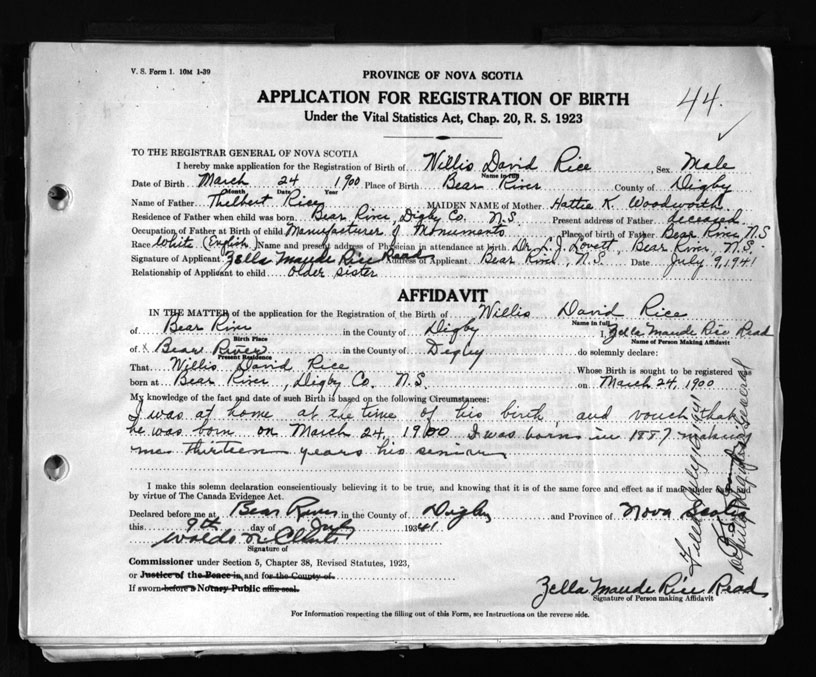 V. S. Form 1. 10M 1-39
PROVINCE OF NOVA SCOTIA
APPLICATION FOR REGISTRATION OF BIRTH
44.
Under the Vital Statistics Act, Chap. 20, R. S. 1923
TO THE REGISTRAR GENERAL OF NOVA SCOTIA
I hereby make application for the Registration of Birth of Willis David Rice Sex Male
Name in full
Date of Birth March 24 1900 Place of Birth Bear River County of Digby
Month Date Year
Name of Father Thelbert Rice MAIDEN NAME of Mother Hattie K. Woodworth
Residence of Father when child was born Bear River, Digby Co. N.S. Present address of Father deceased
Occupation of Father at Birth of child Manufacturer of Monuments Place of birth of Father Bear River, N.S
Race White (English) Name and present address of Physician in attendance at birth Dr. L. J. Lovett, Bear River, N.S.
Signature of Applicant Zella Maude Rice Read Address of Applicant Bear River, N.S. Date July 9, 1941
Relationship of Applicant to child older sister
AFFIDAVIT
IN THE MATTER of the application for the Registration of the Birth of Willis David Rice
Name in full
of Bear River in the County of Digby I, Zella Maude Rice Read
Birth Place Name of Person Making Affidavit
of x Bear River in the County of Digby do solemnly declare:
Present Residence
That Willis David Rice Whose Birth is sought to be registered was
born at Bear River, Digby Co. N.S. on March 24, 1900
My knowledge of the fact and date of such Birth is based on the following Circumstances:
I was at home at the time of his birth, and vouch that
he was born on March 24, 1900 I was born in 1887 making
me thirteen years his senior
I make this solemn declaration conscientiously believing it to be true, and knowing that it is of the same force and effect as if made under oath and
by virtue of The Canada Evidence Act.
Declared before me at Bear River in the County of Digby and Province of Nova Scotia
this 9th day of July 1941
Signature of
Commissioner under Section 5, Chapter 38, Revised Statutes, 1923,
or Justice of the Peace in, and for the County of
If sworn before a Notary Public affix seal.
Zella Maude Rice Read
Signature of Person making Affidavit
For Information respecting the filling out of this Form, see Instructions on the reverse side.
Filed July 1941
Registrar General